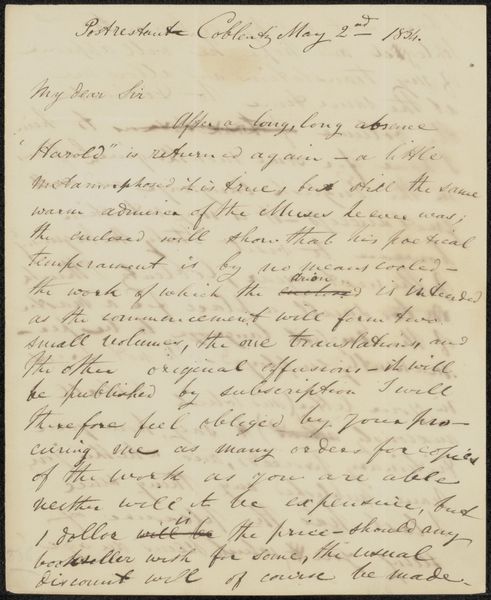 Postrestante Coblentz May 2nd 1834.
My dear Sir
After a long, long absence
"Harold" is returned again – a little
metamorphosed 'tis true, but still the same
warm admirer of the Muses he ever was;
the enclosed will show that his poetical
temperament is by no means cooled –
the work of which the is intended
as the commencement will form two
small volumes, the one translations, and
the other original effusions – it will
be published by subscription I will
therefore feel obliged by your pro-
curing me as many orders for copies
of the work as you are able
neither will it be expensive, but
1 dollar will be the price – should any
bookseller wish for some, the usual
discount will of course be made –